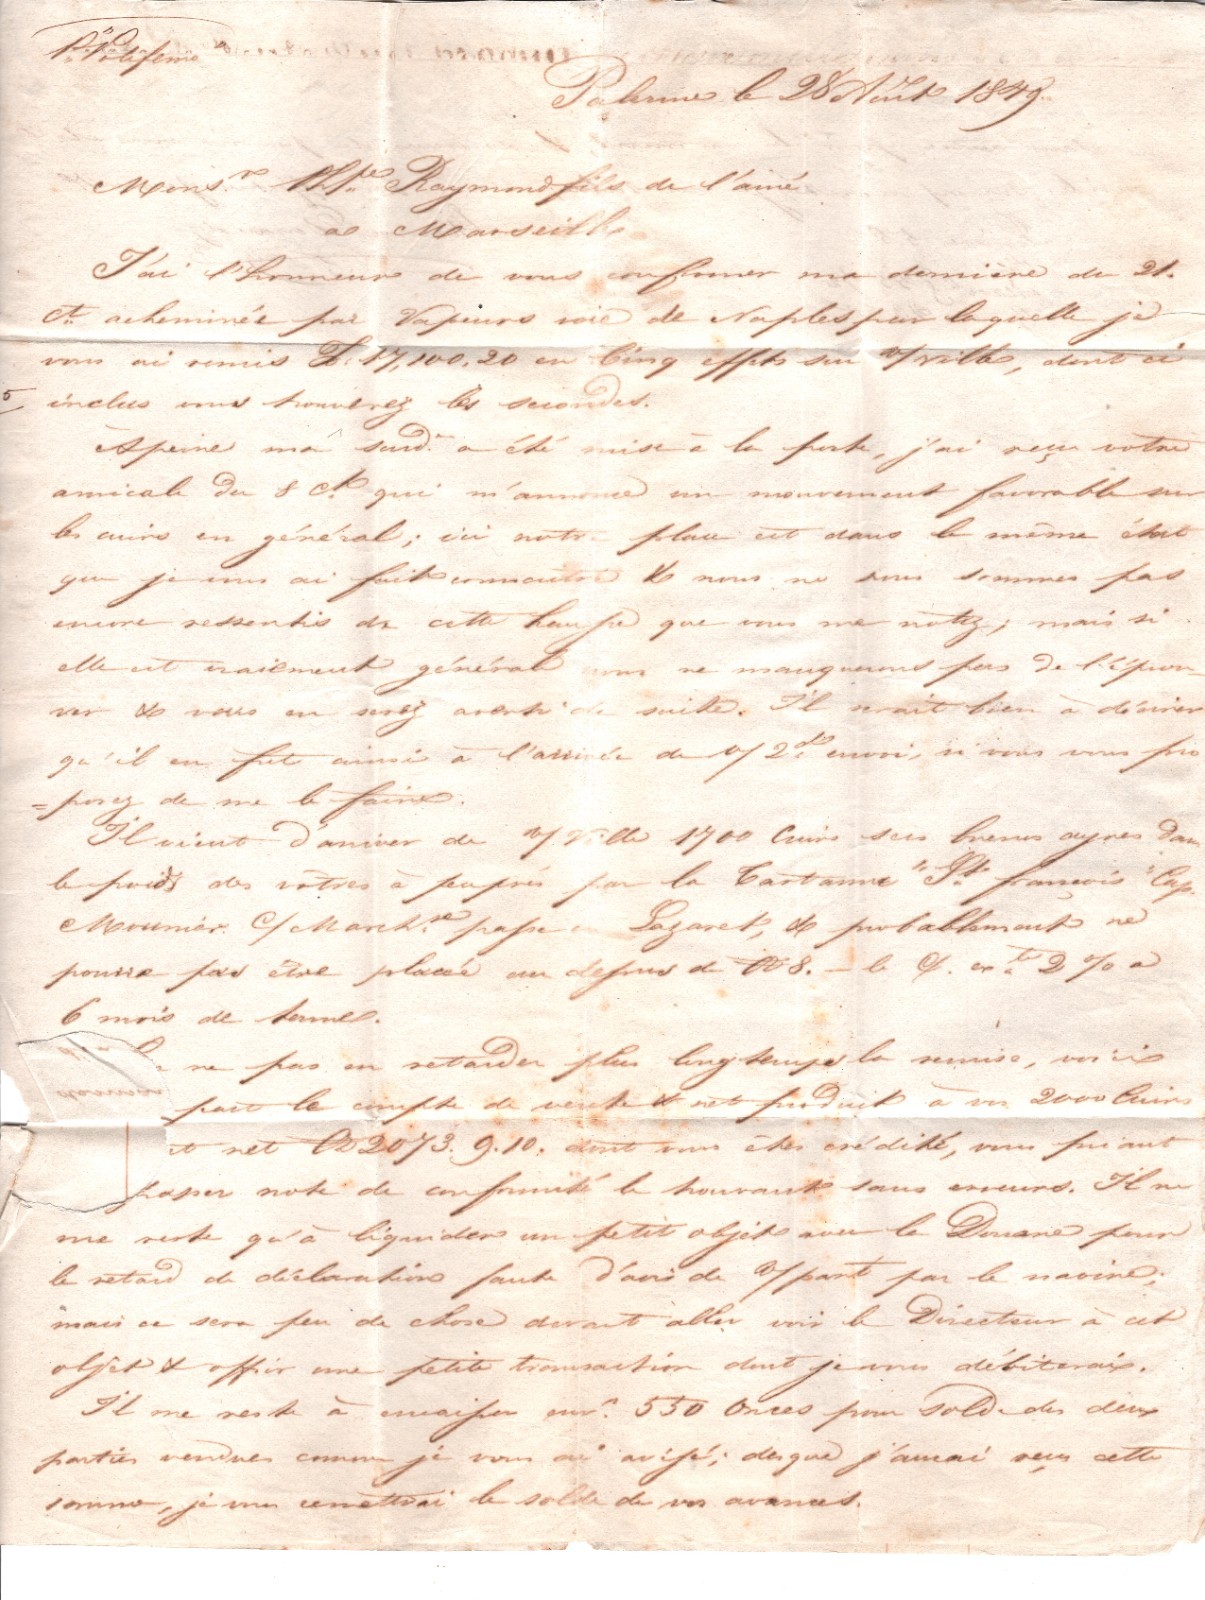 P. Polifemo
Palerme le 28 Août 1849.
Mons.r Raymond fils de l'ainé
a Marseille
J'ai l'honneur de vous confirmer ma dernière du 21.
ct. acheminée par Vapeurs voie de Naples par laquelle je
vous ai remis F. 17,100.20 en Cinq effets sur v/ville, dont ci
5
inclus vous trouverez les secondes.
à Apeine ma susd. a été mise à la poste, j'ai reçu votre
amicale du 8 ct. qui m'annonce un mouvement favorable sur
les cuirs en général; ici notre place est dans le même état
que je vous ai fait connaitre & nous ne nous sommes pas
encore ressentis de cette hausse que vous me notez; mais si
elle est vraiement général nous ne manquerons pas de l'éprou-
ver & vous en serez averti de suite. Il serait bien à désirer
qu'il en fut ainsi à l'arrivée de v/2.d envoi, si vous vous pro
=posez de me le faire.
Il vient d'arriver de v/Ville 1700 Cuirs secs buenos ayres dans
le poids des vôtres à peuprés par la Tartanne "St. françois" Cap.
Mounier. C/ March.se passe en Lazaret, & probablement ne
pourra pas être placée au dessus de 8. - le q. 2 % a
6 mois de terme.
ne pas en retarder plus longtemps la remise, voici
part le compte de vente & net produit à vos 2000 Cuirs
et net 2073. 9. 10. dont vous êtes crédité, vous priant
passer note de conformité le trouvant sans erreurs. Il ne
me reste qu'à liquider un petit objet avec la Douane pour
le retard de déclaration faute d'avis de v/part par le navire;
mais ce sera peu de chose devant aller voir le Directeur à cet
objet & offrir une petite transaction dont je vous débiterai.
Il me reste à encaisser env.n 550 Onces pour solde des deux
parties vendues comme je vous ai avisé; desque j'aurai reçu cette
somme, je vous remettrai le solde de vos avances.